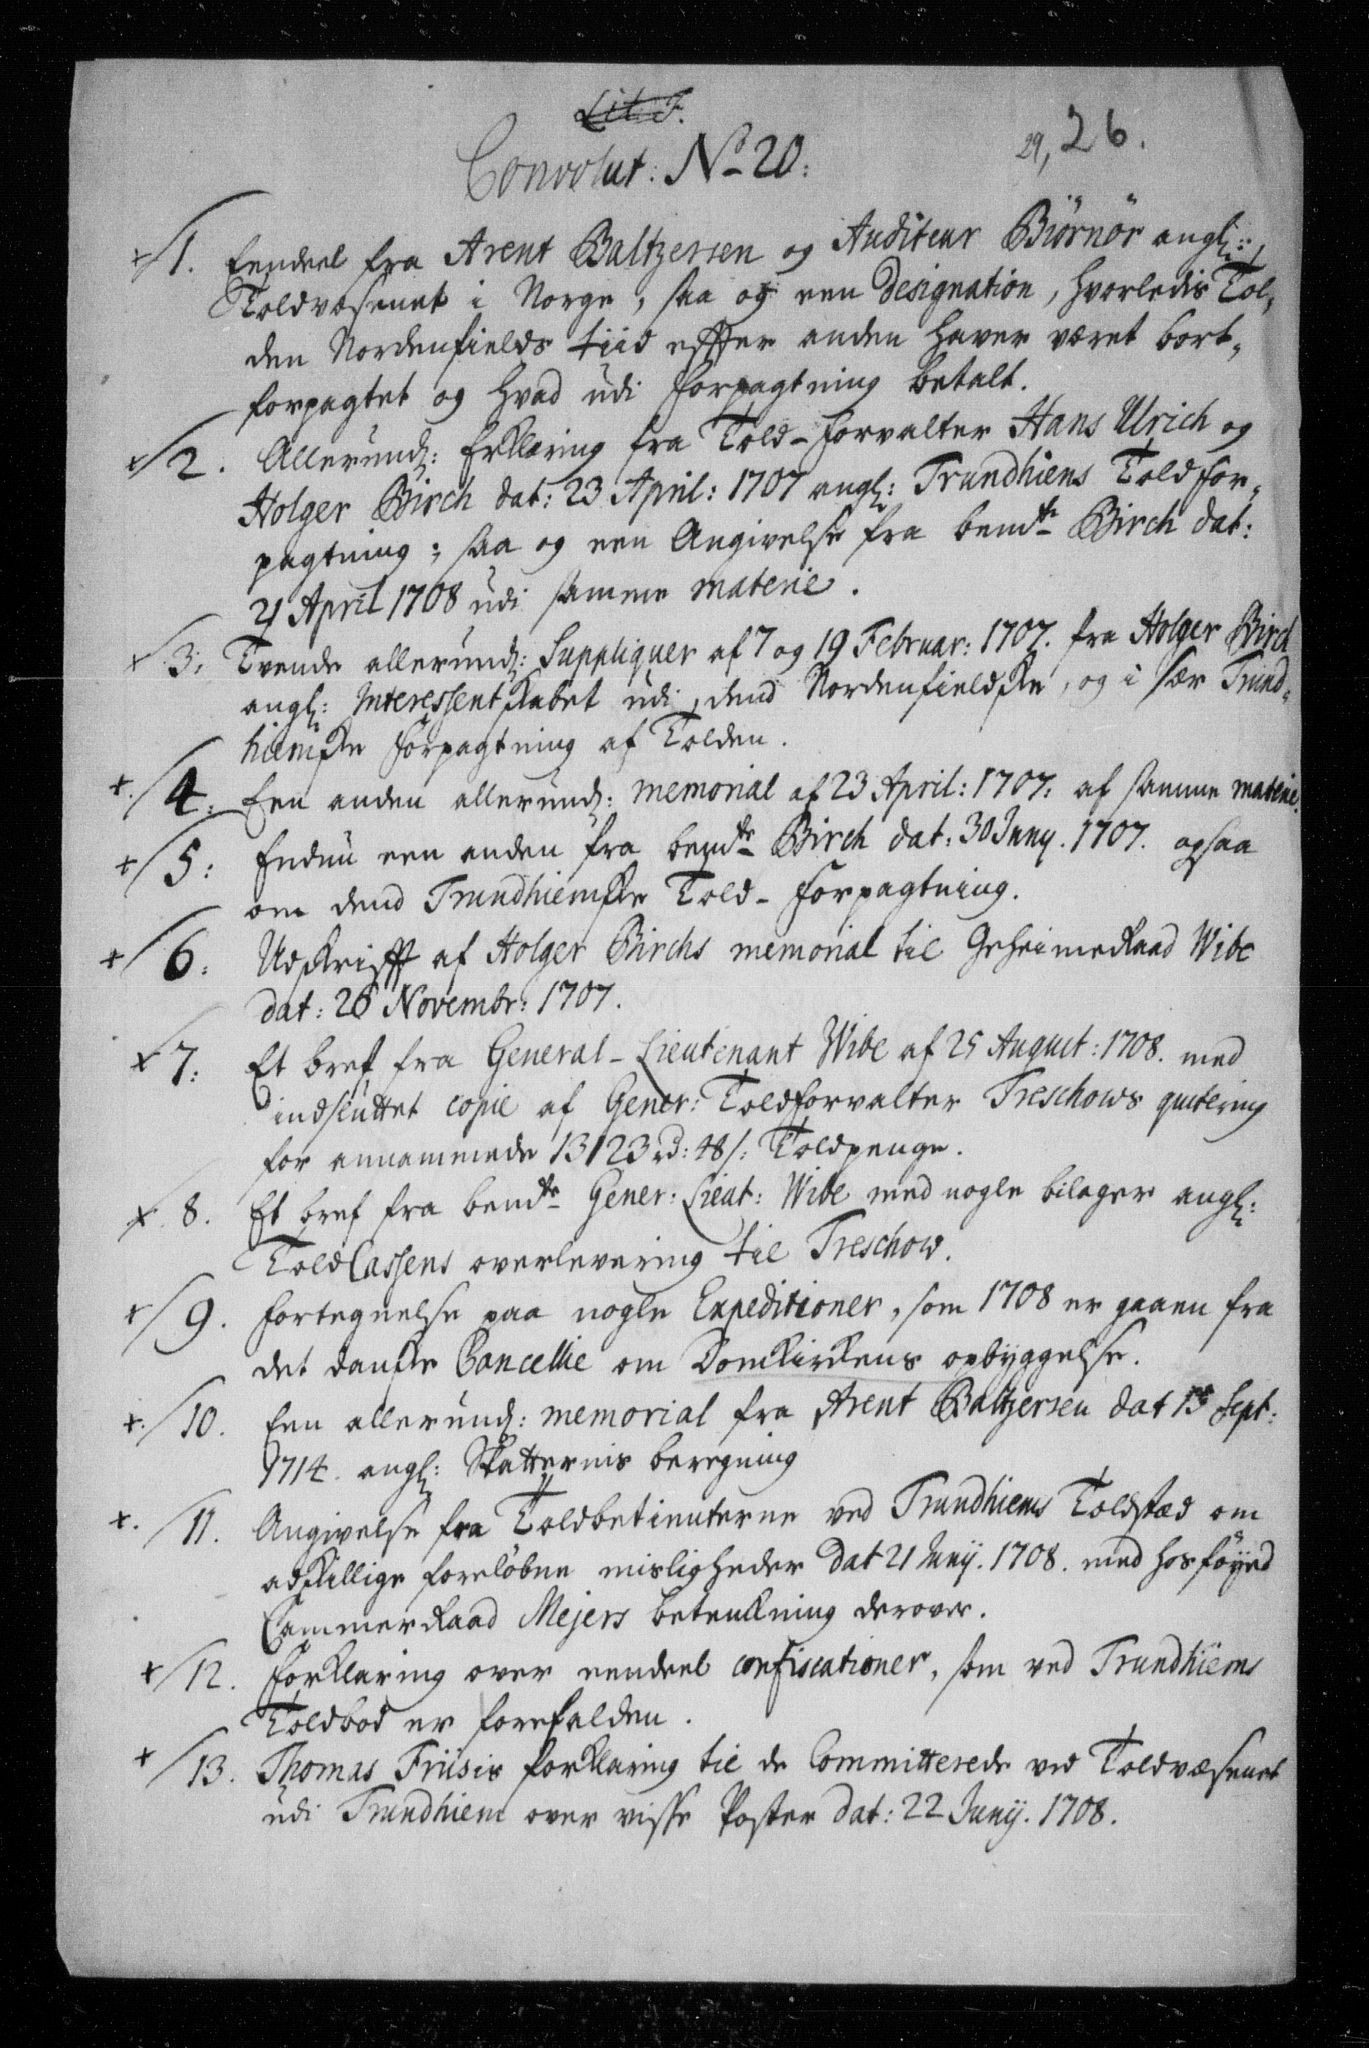 Lit. F.
29, 26.
Convolut: No 20:
+/1. Eendeel fra Arent Baltzersen og Auditeur Biørnør angl:
Toldvæsenet i Norge, saa og een Designation, hvorledis Tol-
den Nordenfields tiid effter anden haver været bort-
forpagtet og hvad udi forpagtning betalt.
+/2. Allerund: Erklæring fra Told-Forvalter Hans Ulrich og
Holger Birch dat: 23 April: 1707 angl: Trundhiens Toldfor-
pagtning; saa og een Angivelse fra bemte Birch dat:
21 April 1708 udi samme materie.
+ 3. Tvende allerund: Suppliquer af 7 og 19 Februar: 1707. fra Holger Birch
angl: Interessentskabet udi dend Nordenfieldske, og i sær Trund-
hiemske forpagtning af Tolden.
+/4. Een anden allerund: memorial af 23 April: 1707: af samme materie.
+/5: Endnu een anden fra bemte Birch dat: 30 Juny. 1707. ogsaa
om dend Trundhiemske Told-forpagtning.
+/6: Udskrifft af Holger Birchs memorial til Geheimeraad Wibe
dat: 26 Novembr: 1707.
+ 7: Et bref fra General-Lieutenant Wibe af 25 August: 1708. med
indsluttet copie af Gener: Toldforvalter Treschows qvitering
for annammede 13123 rd: 48 s: Toldpenge.
+ 8. Et bref fra bemte Gener: Lieut: Wibe med nogle bilager angl:
ToldCassens overlevering til Treschow.
+/9. Fortegnelse paa nogle Expeditioner, som 1708 er gaaen fra
det danske Cancellie om Domkirkens opbyggelse.
+/10. Een allerund: memorial fra Arent Baltzersen dat 15 Sept:
1714. angl: Skatternis beregning
+/11. Angivelse fra Toldbetienterne ved Trundhiems Toldsted om
adskillige foreløbne misligheder dat 21 Junij. 1708. med hosføyed
Cammerraad Mejers betenkning derover.
+/12. Forklaring over eendeel confiscationer, som ved Trundhiems
Toldbod er forefalden.
+/13. Thomas Friisis forklaring til de Committerede ved Toldvæsenet
udi Trundhiem over visse Poster dat: 22 Junij. 1708.